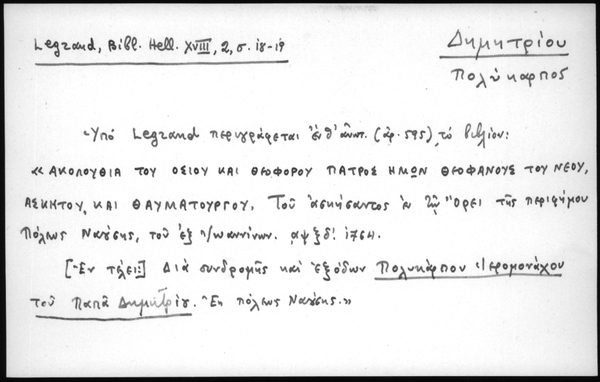 Legrand, Bibl. Hell. XVIII, 2, σ. 18-19
Δημητρίου
Πολύκαρπος
Ὑπὸ Legrand περιγράφεται (ἀρ. 595), τὸ βιβλίον:
« ΑΚΟΛΟΥΘΙΑ ΤΟΥ ΟΣΙΟΥ ΚΑΙ ΘΕΟΦΟΡΟΥ ΠΑΤΡΟΣ ΗΜΩΝ ΘΕΟΦΑΝΟΥΣ ΤΟΥ ΝΕΟΥ,
ΑΣΚΗΤΟΥ, ΚΑΙ ΘΑΥΜΑΤΟΥΡΓΟΥ. Τοῦ ἀσκήσαντος ἐν τῷ Ὄρει τῆς περιφήμου
Πόλεως Ναούσης, τοῦ ἐξ Ἰωαννίνων. αψξδ! 1764.
[Ἐν τέλει:] Διὰ συνδρομῆς καὶ ἐξόδων Πολυκάρπου Ἱερομονάχου
τοῦ Παπᾶ Δημητρίου. Ἐκ πόλεως Ναούσης. »